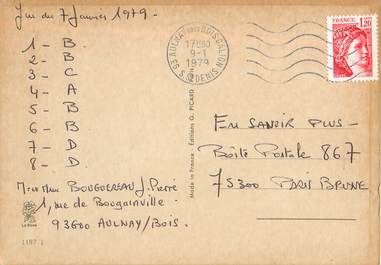 Jeu du 7 Janvier 1979 -
1 - B
2 - B
3 - C
4 - A
5 - B
6 - B
7 - D
8 - D.
Mr et Mme BOUGUEREAU J. Pierre
1, rue de Bougainville -
93600 AULNAY/Bois.
1197 1
93 AULNAY SOUS BOIS GALION
17H30
9-1
1979
S. ST DENIS
FRANCE
1,20
Made in France - Éditions G. PICARD
EN SAVOIR PLUS -
Boîte Postale 867
75300 PARIS BRUNE